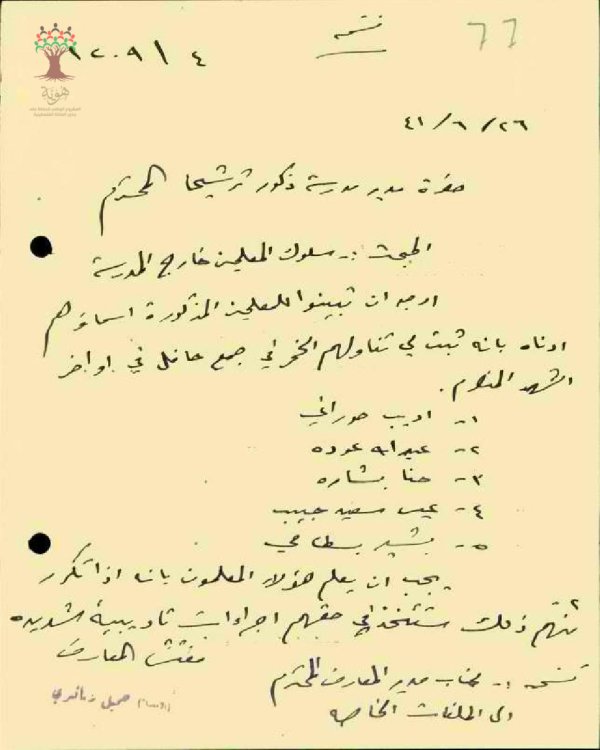 نسخة
77
٤ / ١٢٠٩
٢٦ / ٦ / ٤١
حضرة مدير مدرسة ذكور ترشيحا المحترم
المبحث :- سلوك المعلمين خارج المدرسة
ارجو ان تبينوا للمعلمين المذكورة اسماؤهم
ادناه بانه ثبت لي تناولهم الخمر في جمع حافل في اواخر
الشهر المنصرم .
١- اديب حوراني
٢- عبد الله عوده
٣- حنا بشاره
٤- سعيد حبيب
٥- بشير بسطامي
يجب ان يعلم هؤلاء المعلمون بانه اذا تكرر
منهم ذلك ستتخذ في حقهم اجراءات تاديبية شديده
مفتش المعارف
نسخة :- لجناب مدير المعارف المحترم
الى الملفات الخاصه
هوية